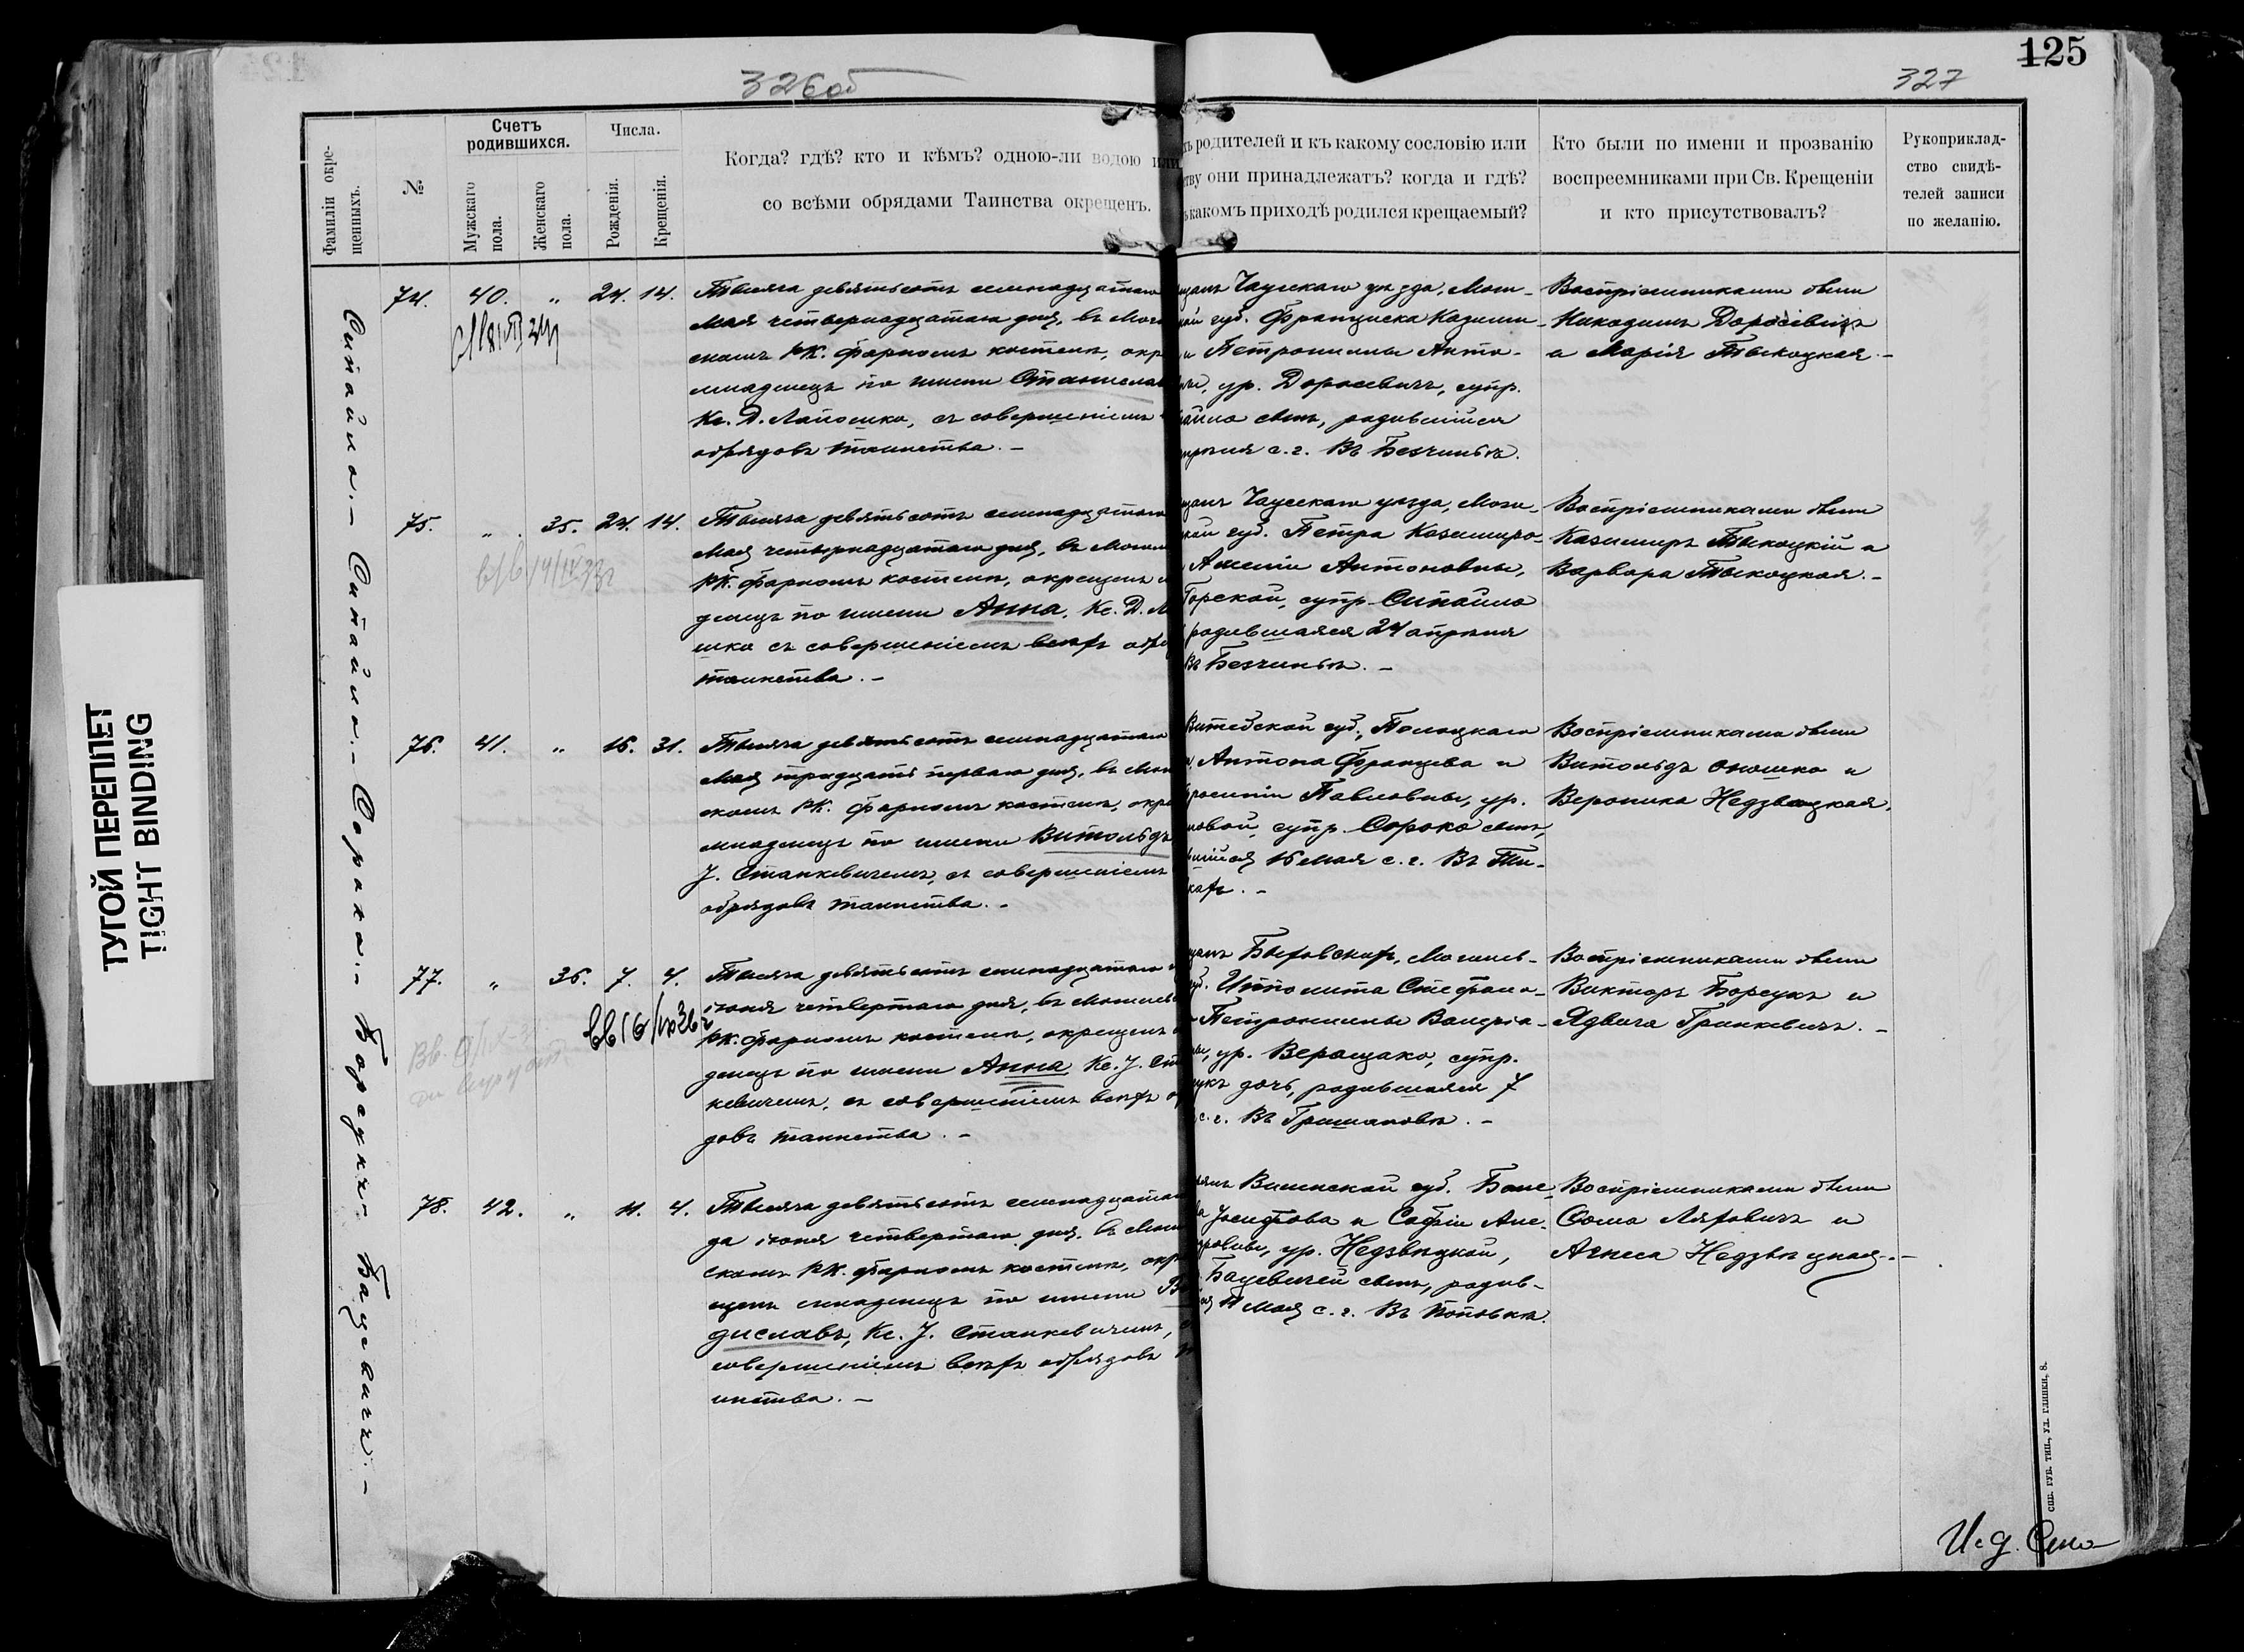 125
326об
327
Фамиліи окре-
щенныхъ.
№
Счетъ
родившихся.
Мужскаго
пола.
Женскаго
пола.
Числа.
Рожденія.
Крещенія.
Когда? гдѣ? кто и кѣмъ? одною-ли водою или
со всѣми обрядами Таинства окрещенъ.
родителей и къ какому сословію или
они принадлежатъ? когда и гдѣ?
какомъ приходѣ родился крещаемый?
Кто были по имени и прозванію
воспреемниками при Св. Крещеніи
и кто присутствовалъ?
Рукоприклад-
ство свидѣ-
телей записи
по желанію.
Сипайло.- Сипайло.- Сорока.- Борсукъ.- Бацевичъ.-
74. 40. " 24. 14.
Тысяча девятьсотъ семнадцатаго
мая четвернадцатаго дня, въ Моги
скомъ РК. фарномъ костелѣ, окре
младенецъ по имени Станислав
Кс. Д. Лапошко, съ совершеніемъ
обрядовъ таинства.-
Чаусскаго уѣзда, Моги-
губ. Франциска Казими-
и Петрониллы Анто-
ур. Доросевичъ, супр.
сынъ, родившійся
с.г. Въ Безчинѣ.
Воспріемниками были
Никодимъ Доросевичъ
и Марія Тыкоцкая.-
75. " 35. 24. 14.
Тысяча девятьсотъ семнадцатаго
мая четырнадцатаго дня, въ Могил
РК. фарномъ костелѣ, окрещенъ
денецъ по имени Анна, Кс. Д. Л
шко съ совершеніемъ всѣхъ обря
таинства.-
Чаусскаго уѣзда, Моги-
губ. Петра Казимиро-
Антоновны,
Горской, супр. Сипайло
родившаяся 24 апрѣля
въ Безчинѣ.-
Воспріемниками были
Казимиръ Тыкоцкій и
Варвара Тыкоцкая.-
76. 41. " 16. 31.
Тысяча девятьсотъ семнадцатаго
мая тридцать перваго дня, въ Моги
скомъ РК. фарномъ костелѣ, окре
младенецъ по имени Витольдъ
J. Станкевичемъ, съ совершеніемъ
обрядовъ таинства.-
Витебской губ., Полоцкаго
Антона Францева и
Павловны, ур.
супр. Сорока сынъ,
16 мая с.г. Въ Ти-
Воспріемниками были
Витольдъ Оношко и
Вероника Недзвецкая.
77. " 36. 7. 4.
Тысяча девятьсотъ семнадцатаго
іюня четвертаго дня, въ Могилев
РК. фарномъ костелѣ, окрещенъ
денецъ по имени Анна, Кс. J. Ста
кевичемъ, съ совершеніемъ всѣхъ об
довъ таинства.-
Быховскихъ, Могилев-
Ипполита Стефано-
Петрониллы Валеріа-
ур. Верещако, супр.
дочь, родившаяся 7
с.г. Въ Гришановѣ.-
Воспріемниками были
Викторъ Борсукъ и
Ядвига Гринкевичъ.-
78. 42. " 11. 4.
Тысяча девятьсотъ семнадцатаго
да іюня четвертаго дня, въ Моги
скомъ РК. фарномъ костелѣ, окре
щенъ младенецъ по имени В
диславъ, Кс. J. Станкевичемъ,
совершеніемъ всѣхъ обрядовъ
инства.-
Виленской губ. Боле-
Іосифова и Софіи Але-
ур. Недзвѣцкой,
Бацевичей сынъ, родив-
11 мая с.г. Въ Поповкѣ.
Воспріемниками были
Ѳома Ляховичъ и
Агнеса Недзвѣцкая.-
ТУГОЙ ПЕРЕПЛЕТ
TIGHT BINDING
СПБ. ГУБ. ТИП., УЛ. ГЛИНКИ, 8.